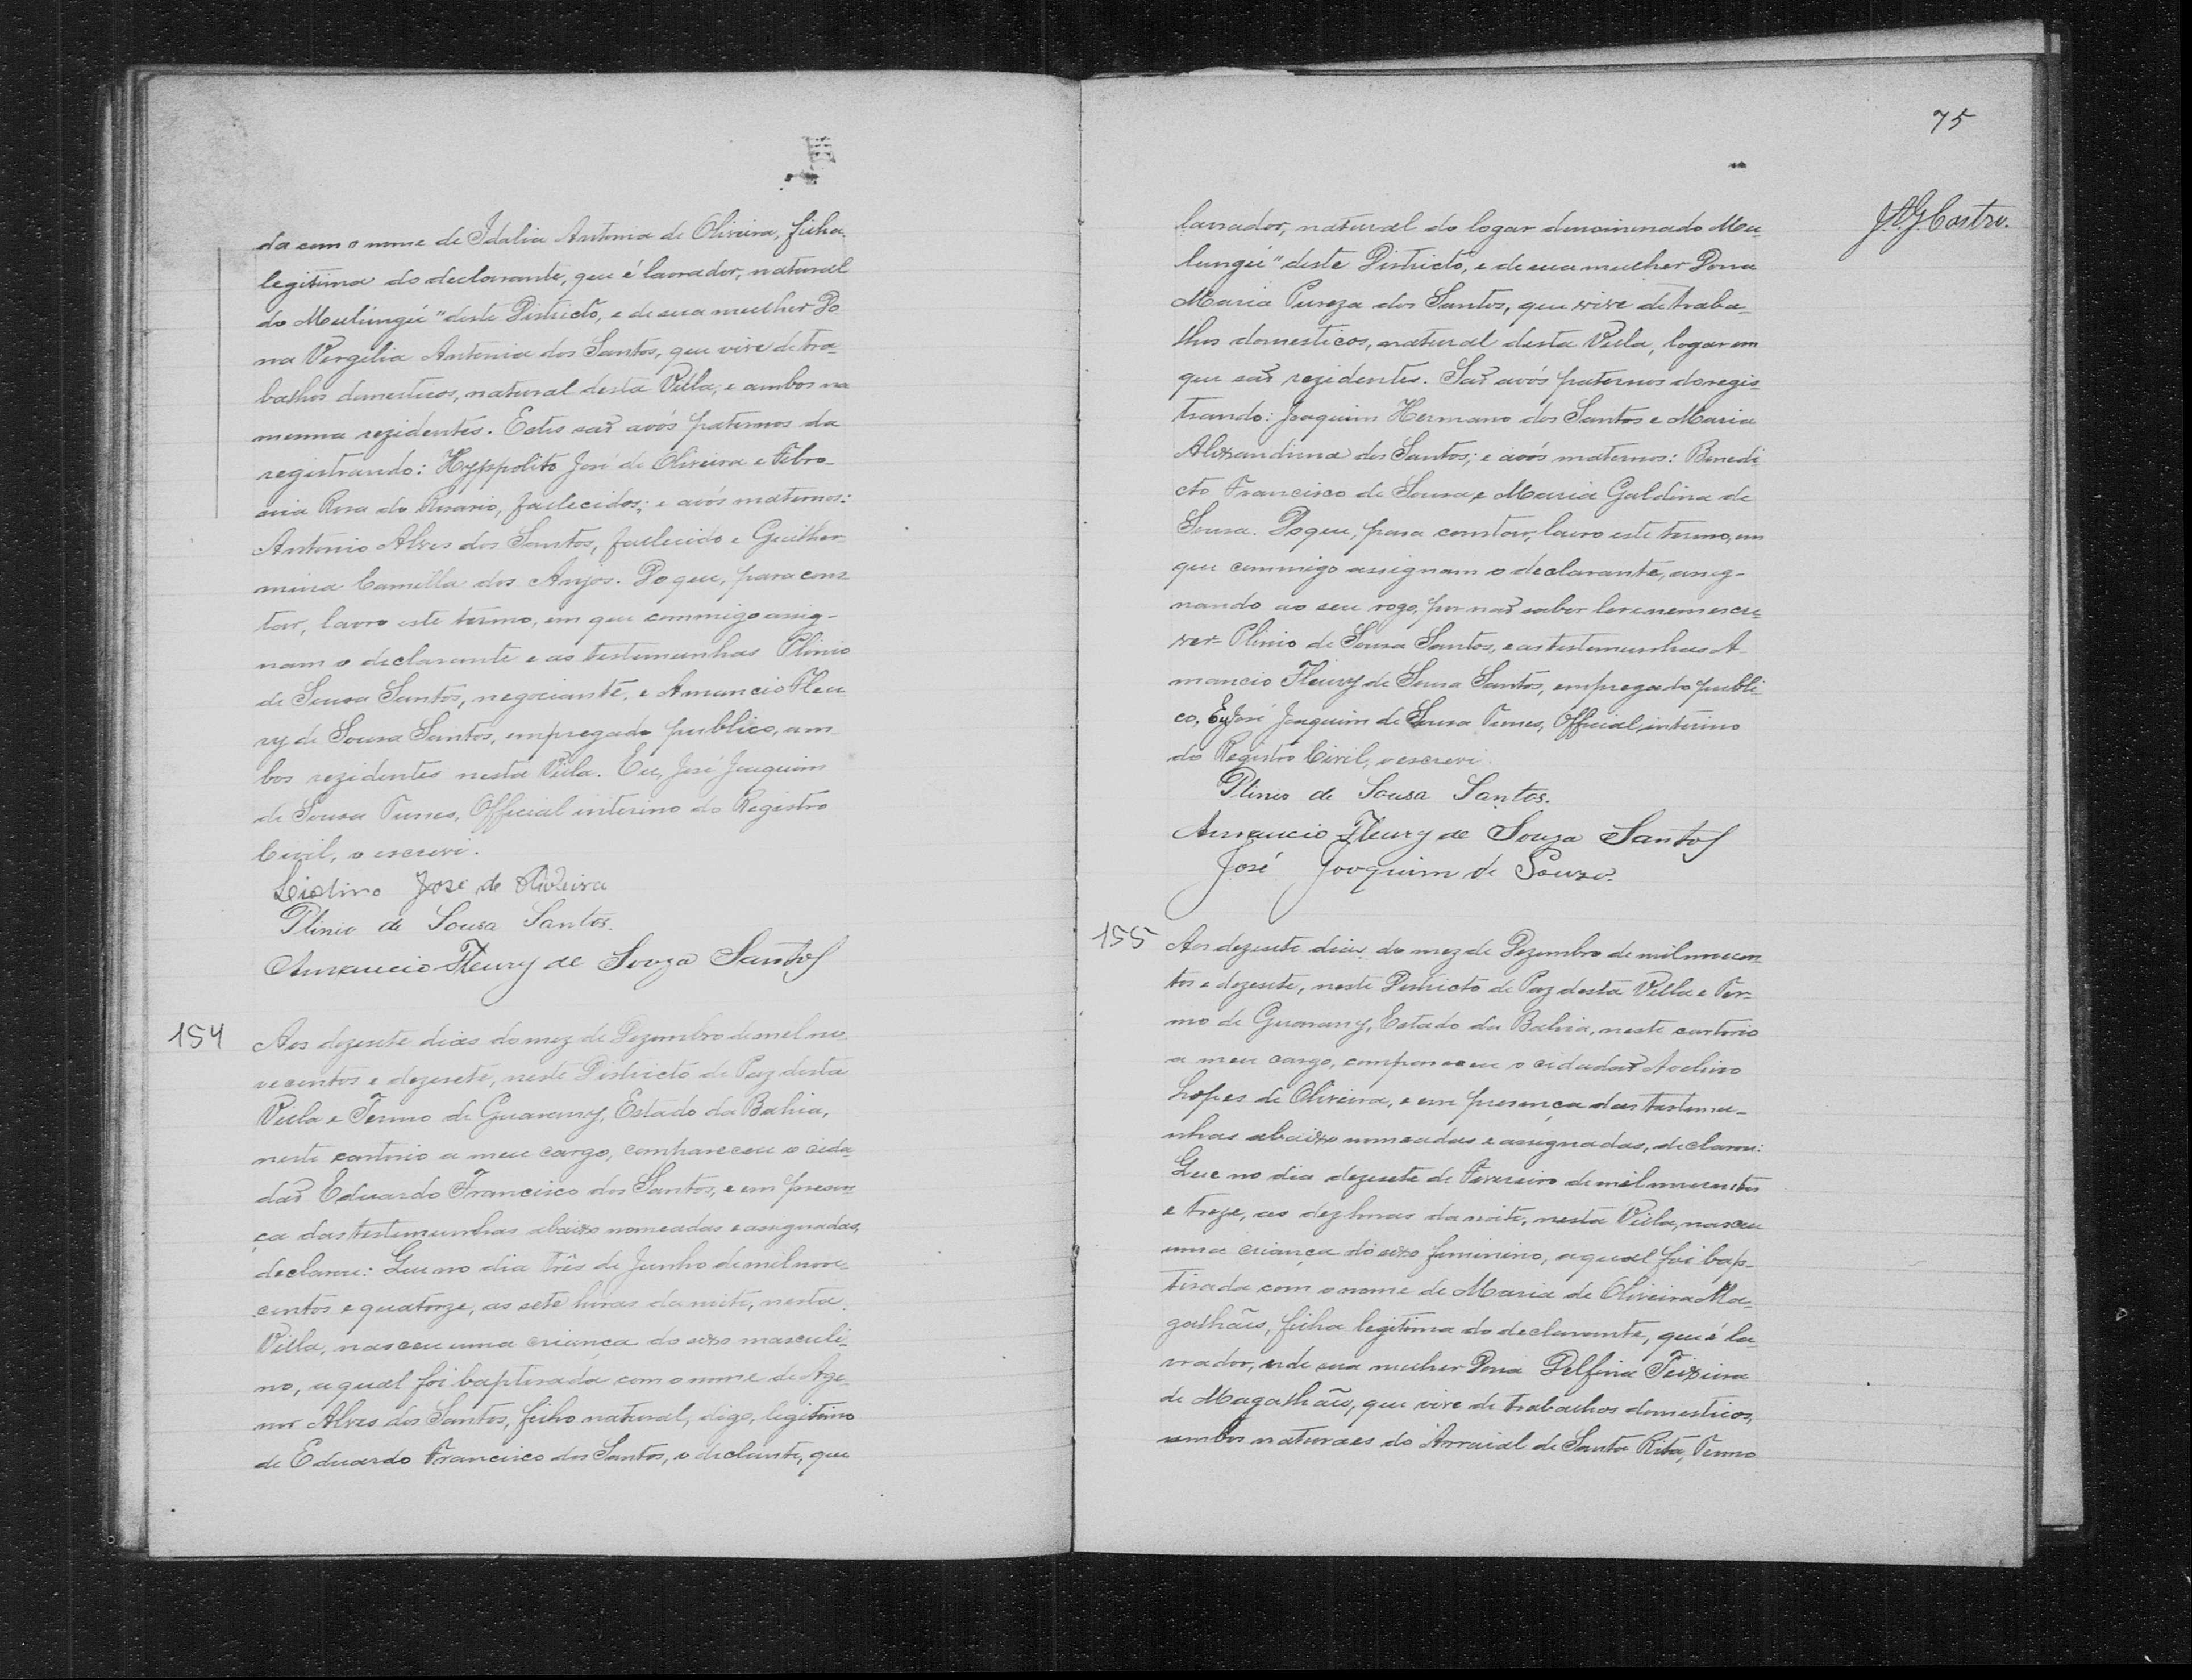 da com o nome de Idalia Antonia de Oliveira, filha
legitima do declarante, que é lavrador, natural
do Mulungú" deste Districto, e de sua mulher Do
na Vergilia Antonia dos Santos, que vive de tra-
balhos domesticos, natural desta Villa, e ambos na
mesma rezidentes. Estes são avós paternos da
registrando: Hyppolito José de Oliveira e Febro-
nia Rosa do Rosario, fallecidos; e avós maternos:
Antonio Alves dos Santos, fallecido e Guilher-
mina Camilla dos Anjos. Do que, para cons
tar, lavro este termo, em que commigo assig-
nam o declarante e as testemunhas Plinio
de Sousa Santos, negociante, e Amancio Fleu
ry de Sousa Santos, empregado publico, am
bos rezidentes nesta Villa. Eu, José Joaquim
de Sousa Tunes, Official interino do Registro
Civil, o escrevi.
José de Oliveira
Plinio de Sousa Santos.
Amancio Fleury de Souza Santos
154 Aos dezesete dias do mez de Dezembro de mil no
vecentos e dezesete, neste Districto de Paz desta
Villa e Termo de Guarany, Estado da Bahia,
neste cartorio a meu cargo, compareceu o cida-
dão Eduardo Francisco dos Santos, e em presen-
ça das testemunhas abaixo nomeadas e assignadas,
declarou: Que no dia três de Junho de mil nove-
centos e quatorze, as sete horas da noite, nesta
Villa, nasceu uma criança do sexo masculi-
no, a qual foi baptisada com o nome de Age-
nor Alves dos Santos, filho natural, digo, legitimo
de Eduardo Francisco dos Santos, o declante, que
75
J.A.G. Castro.
lavrador, natural do logar denominado Mu-
lungú" deste Districto, e de sua mulher Dona
Maria Pureza dos Santos, que vive de traba-
lhos domesticos, natural desta Villa, logar em
que são rezidentes. São avós paternos do regis-
trando: Joaquim Hermano dos Santos e Maria
Alexandrina dos Santos; e avós maternos: Benedi
cto Francisco de Sousa e Maria Galdina de
Sousa. Do que, para constar, lavro este termo, em
que commigo assignam o declarante, assig-
nando ao seu rogo, por não saber ler e nem escre-
ver= Plinio de Sousa Santos, e as testemunhas A
mancio Fleury de Sousa Santos, empregado publi-
co. Eu José Joaquim de Sousa Tunes, Official interino
do Registro Civil, o escrevi.
Plinio de Sousa Santos.
Amancio Fleury de Souza Santos
José Joaquim de Souza.
155 Aos dezesete dias do mez de Dezembro de mil novecen
tos e dezesete, neste Districto de Paz desta Villa e Ter-
mo de Guarany, Estado da Bahia, neste cartorio
a meu cargo, compareceu o cidadão Avelino
Lopes de Oliveira, e em presença das testemu-
nhas abaixo nomeadas e assignadas, declarou:
Que no dia dezesete de Fevereiro de mil novecentos
e treze, as dez horas da noite, nesta Villa, nasceu
uma criança do sexo feminino, a qual foi bap-
tisada com o nome de Maria de Oliveira Ma-
galhães, filha legitima do declarante, que é la-
vrador, e de sua mulher Dona Delfina Teixeira
de Magalhães, que vive de trabalhos domesticos,
ambos naturaes do Arraial de Santa Rita, Termo